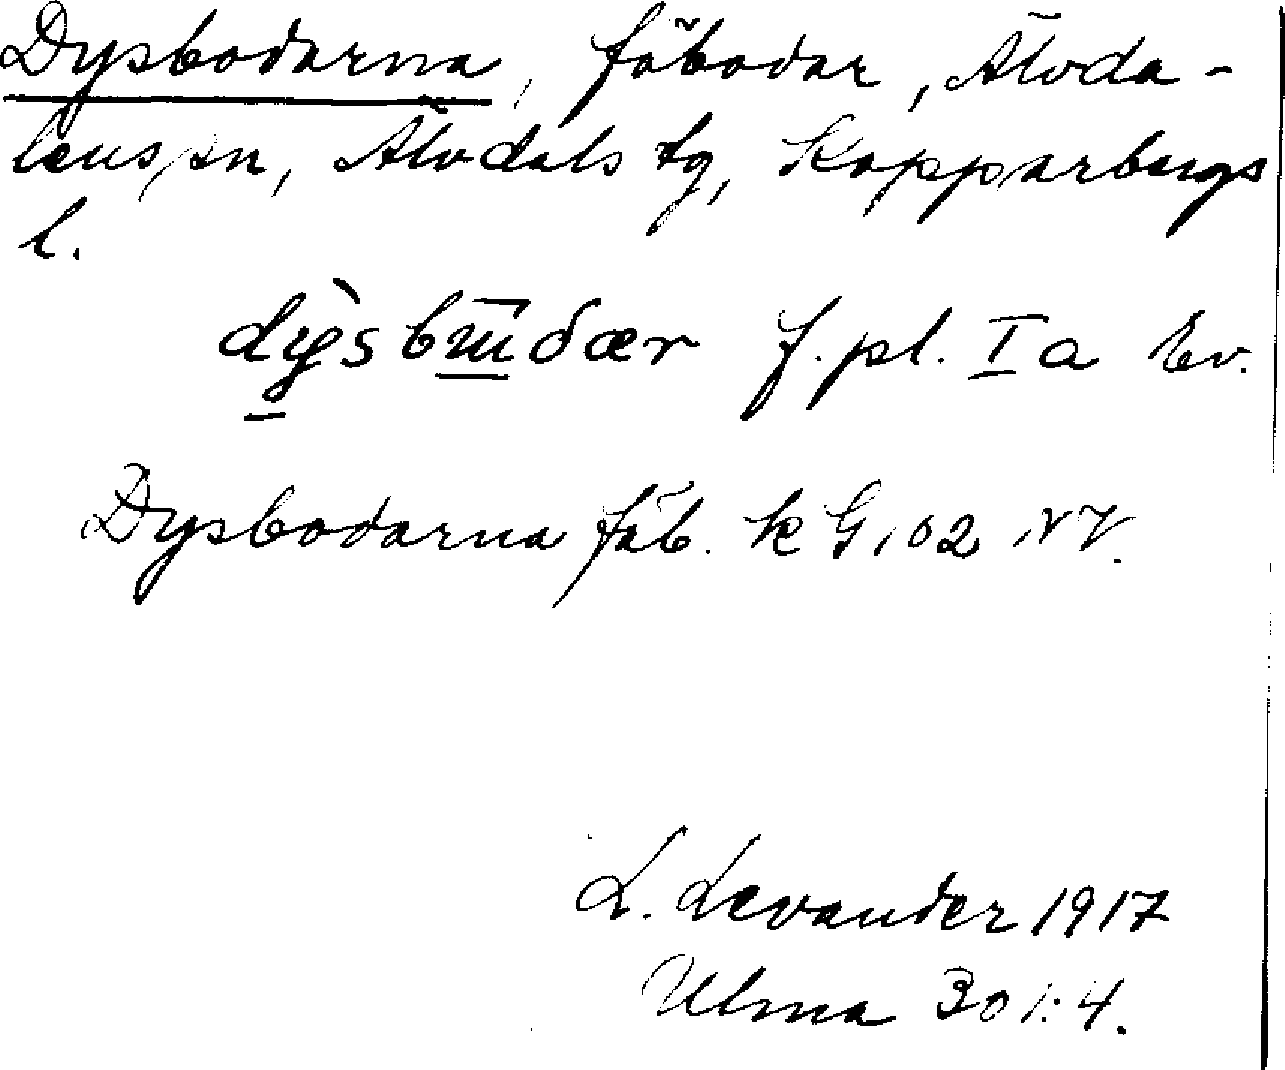 Dysbodarna, fäbodar, Älvda-
lens sn, Älvdals tg, Kopparbergs
l.
dỳsbɯ̄dær f. pl. I a Ev.
Dysbodarna fäb. k G 102 NV.
L. Levander 1917
Ulma 301:4.